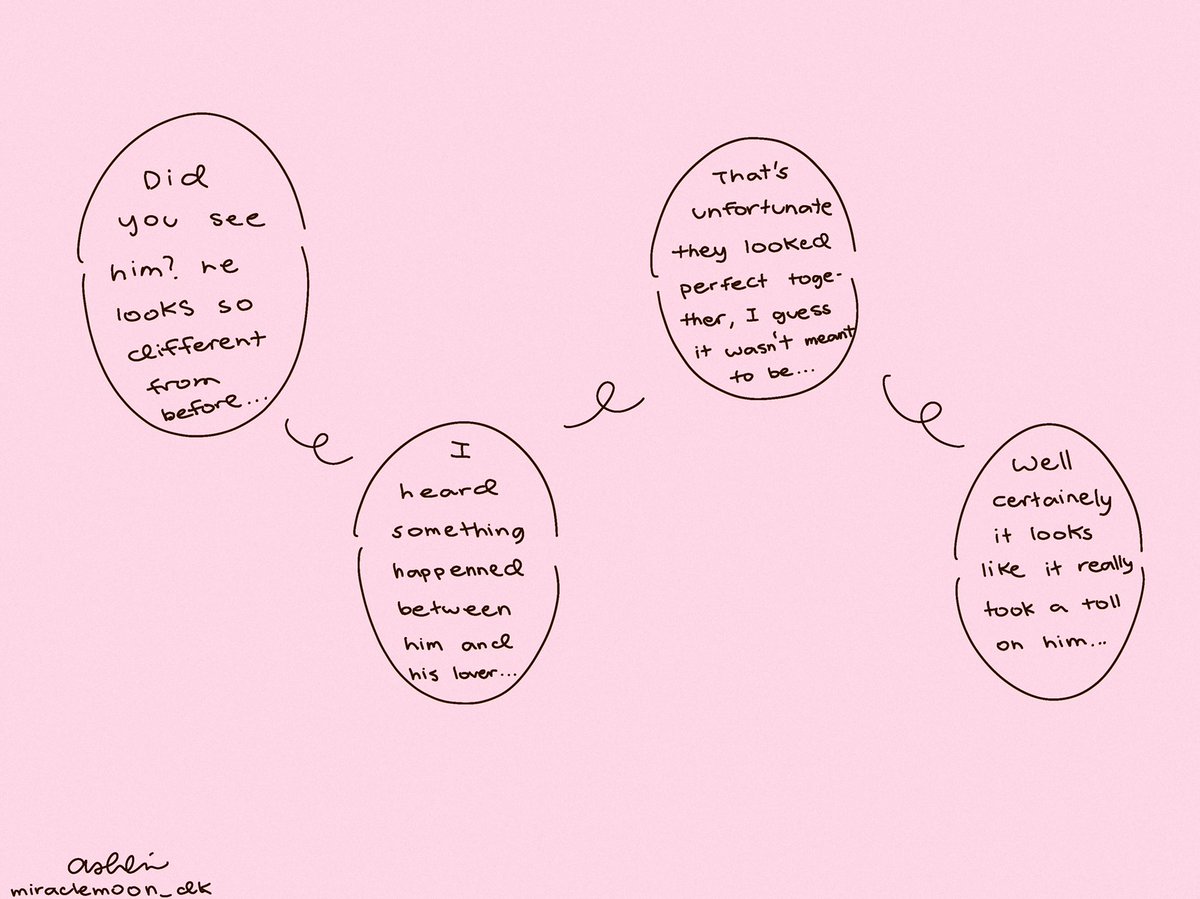 Did
you see
him? he
looks so
different
from
before...
I
heard
something
happenned
between
him and
his lover...
That's
unfortunate
they looked
perfect toge-
ther, I guess
it wasn't meant
to be...
Well
certainely
it looks
like it really
took a toll
on him...
miraclemoon_dk